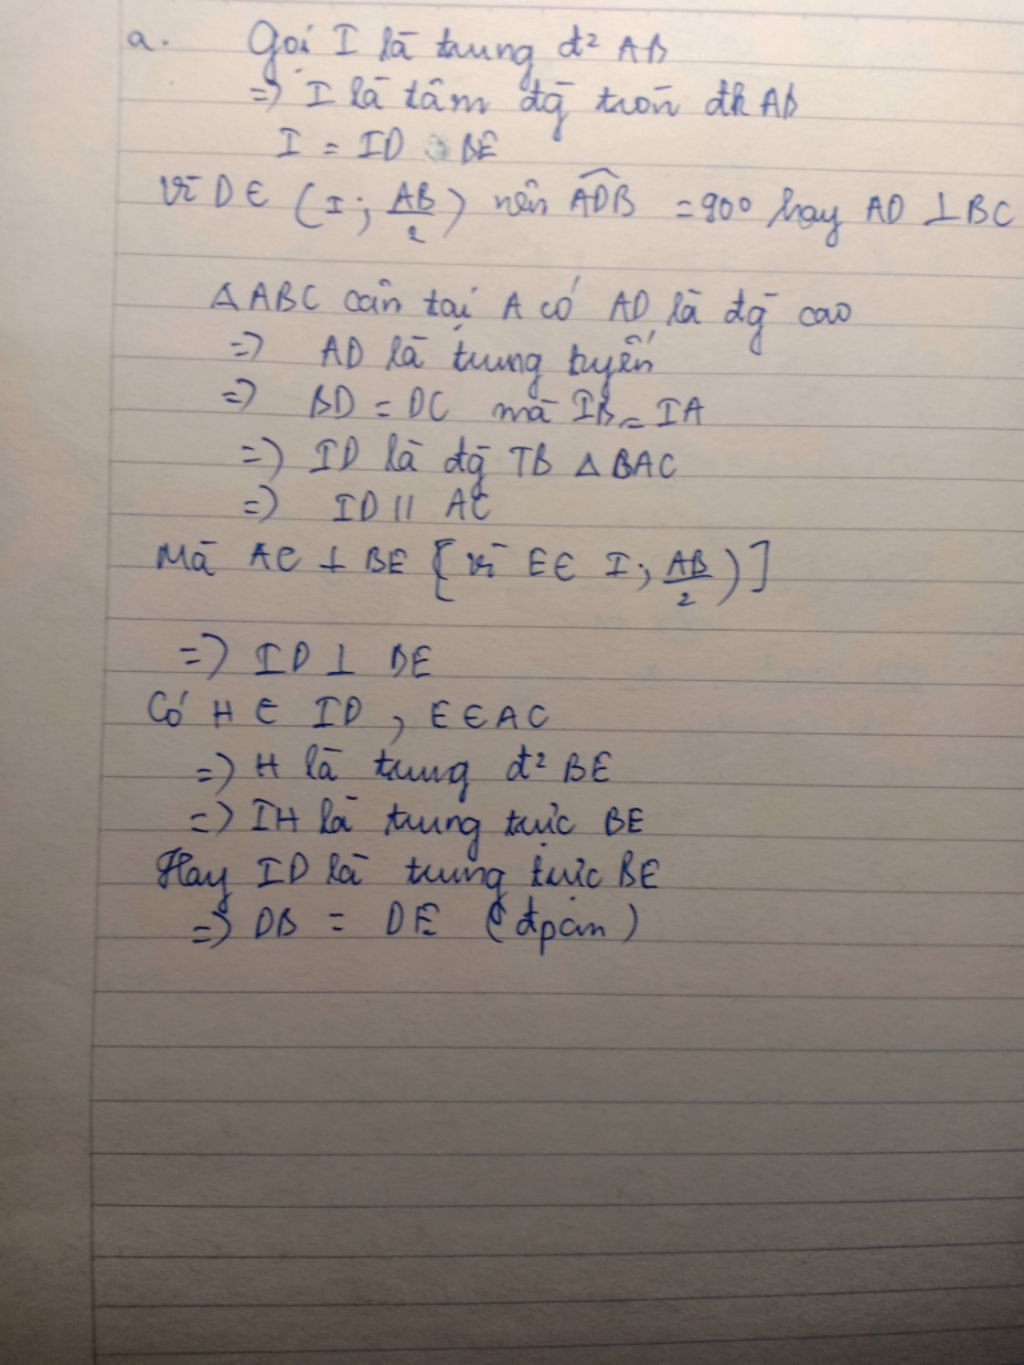 a. Gọi I là trung đ² AB
=> I là tâm đg̃ tròn đk AB
I = ID BE
Vì D ∈ (I; AB/2) nên ADB = 90° hay AD ⊥ BC
Δ ABC cân tại A có AD là đg̃ cao
=> AD là trung tuyến
=> BD = DC mà IB = IA
=> ID là đg̃ TB Δ BAC
=> ID // AC
Mà AC ⊥ BE [vì E ∈ I; AB/2)]
=> ID ⊥ BE
Có H ∈ ID, E ∈ AC
=> H là trung đ² BE
=> IH là trung trực BE
Hay ID là trung trực BE
=> DB = DE (đpcm)